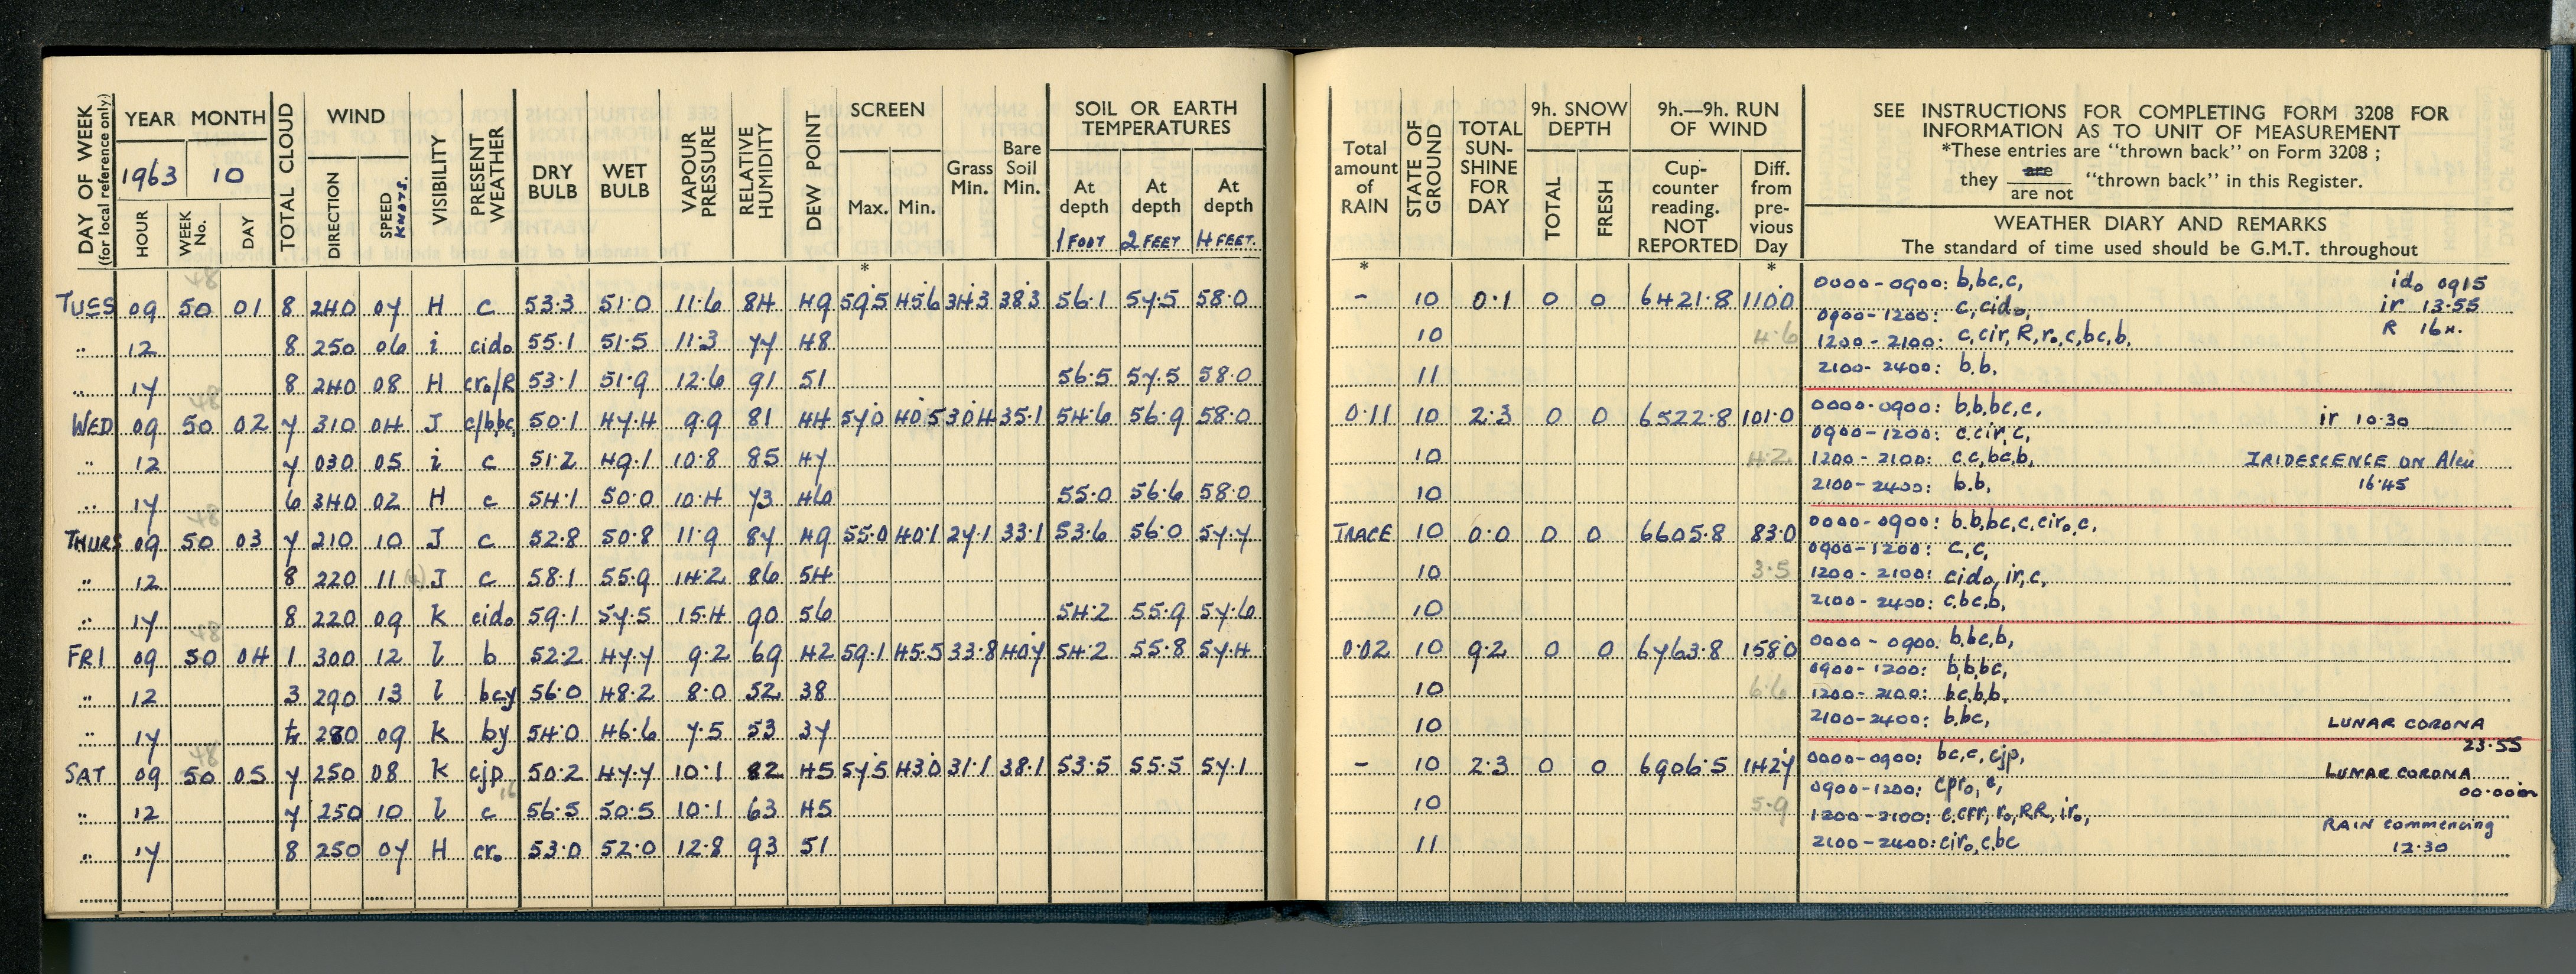 DAY OF WEEK
(for local reference only.)
YEAR MONTH
1963 10
HOUR WEEK No. DAY
TOTAL CLOUD
WIND
DIRECTION SPEED KNOTS.
VISIBILITY
PRESENT WEATHER
DRY BULB
WET BULB
VAPOUR PRESSURE
RELATIVE HUMIDITY
DEW POINT
SCREEN
Max. Min.
*
Grass Min.
Bare Soil Min.
SOIL OR EARTH
TEMPERATURES
At depth 1 FOOT
At depth 2 FEET
At depth 4 FEET.
Total amount of RAIN
*
STATE OF GROUND
TOTAL SUN-SHINE FOR DAY
9h. SNOW DEPTH
TOTAL FRESH
9h.—9h. RUN OF WIND
Cup-counter reading. NOT REPORTED
Diff. from pre-vious Day
*
SEE INSTRUCTIONS FOR COMPLETING FORM 3208 FOR
INFORMATION AS TO UNIT OF MEASUREMENT
*These entries are "thrown back" on Form 3208 ;
they are / are not "thrown back" in this Register.
WEATHER DIARY AND REMARKS
The standard of time used should be G.M.T. throughout
TUES 09 50 01 8 240 07 H c 53.3 51.0 11.6 84 49 59.5 45.6 34.3 38.3 56.1 57.5 58.0 - 10 0.1 0 0 6421.8 110.0
.. 12 8 250 06 i cido 55.1 51.5 11.3 77 48 10 4.6
.. 17 8 240 08 H cro/R 53.1 51.9 12.6 91 51 56.5 57.5 58.0 11
0000-0900: b,bc.c, ido 0915
0900-1200: c,cido, ir 13.55
1200-2100: c,cir,R,ro,c,bc,b. R 16H.
2100-2400: b.b.
WED 09 50 02 7 310 04 J c/bbc 50.1 47.4 9.9 81 44 57.0 40.5 30.4 35.1 54.6 56.9 58.0 0.11 10 2.3 0 0 6522.8 101.0
.. 12 7 030 05 i c 51.2 49.1 10.8 85 47 10 4.2
.. 17 6 340 02 H c 54.1 50.0 10.4 73 46 55.0 56.6 58.0 10
0000-0900: b,b,bc,c, ir 10.30
0900-1200: c.cir,c,
1200-2100: c.c,bc,b, IRIDESCENCE ON Alcu
2100-2400: b.b, 16.45
THURS 09 50 03 7 210 10 J c 52.8 50.8 11.9 87 49 55.0 40.1 27.1 33.1 53.6 56.0 57.7 TRACE 10 0.0 0 0 6605.8 83.0
.. 12 8 220 11 J c 58.1 55.9 14.2 86 54 10 3.5
.. 17 8 220 09 K cido 59.1 57.5 15.4 90 56 54.2 55.9 57.6 10
0000-0900: b.b,bc,c,ciro,c,
0900-1200: c,c,
1200-2100: cido, ir,c,
2100-2400: c.bc,b,
FRI 09 50 04 1 300 12 l b 52.2 47.7 9.2 69 42 59.1 45.5 33.8 40.7 54.2 55.8 57.4 0.02 10 9.2 0 0 6763.8 158.0
.. 12 3 290 13 l bcy 56.0 48.2 8.0 52 38 10 6.6
.. 17 280 09 K by 54.0 46.6 7.5 53 37 10
0000-0900: b,bc,b,
0900-1200: b,b,bc,
1200-2100: bc,b,b,
2100-2400: b,bc, LUNAR CORONA
23.55
SAT 09 50 05 7 250 08 K cjp 50.2 47.7 10.1 82 45 57.5 43.0 31.1 38.1 53.5 55.5 57.1 - 10 2.3 0 0 6906.5 142.7
.. 12 7 250 10 l c 56.5 50.5 10.1 63 45 10 5.9
.. 17 8 250 07 H cro 53.0 52.0 12.8 93 51 11
0000-0900: bc,c,cjp, LUNAR CORONA
0900-1200: cpro, c,
1200-2100: c,crr, ro,RR, iro, RAIN commencing
2100-2400: ciro,c,bc 12.30